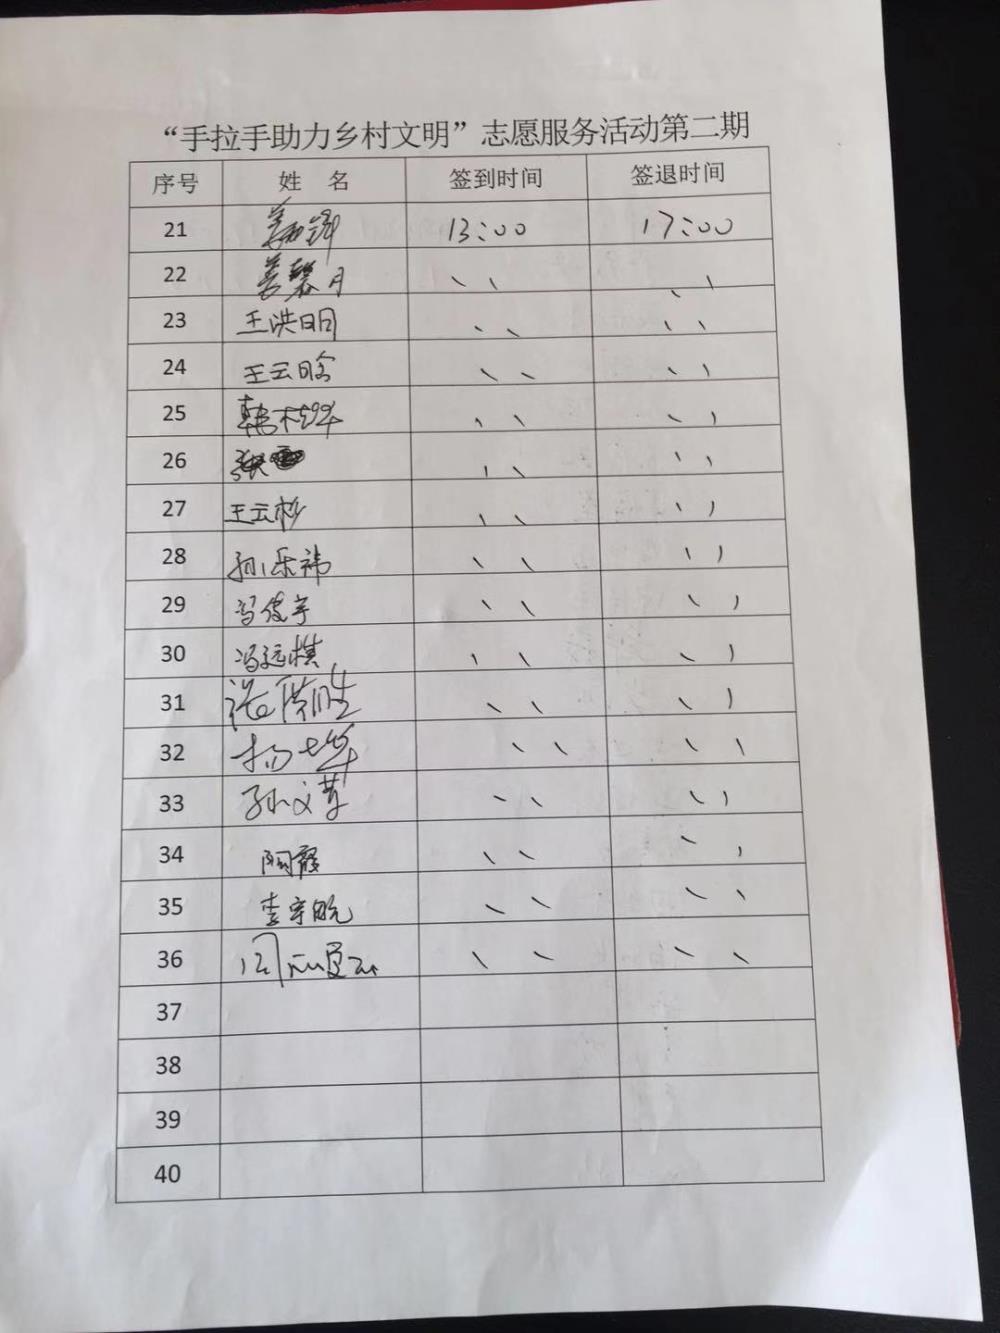 “手拉手助力乡村文明”志愿服务活动第二期
序号 姓 名 签到时间 签退时间
21 姜 13:00 17:00
22 姜馨月 、、 、、
23 王洪明 、、 、、
24 王云晗 、、 、、
25 韩 、、 、、
26 张 、、 、、
27 王云杉 、、 、、
28 孙乐祎 、、 、、
29 冯俊宇 、、 、、
30 冯远棋 、、 、、
31 张 、、 、、
32 杨 、、 、、
33 孙文 、、 、、
34 霞 、、 、、
35 李宇航 、、 、、
36 、、 、、
37
38
39
40